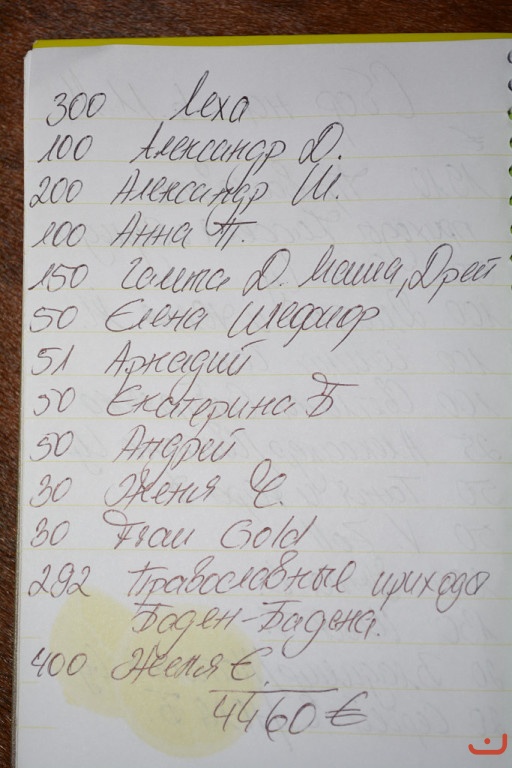 300 Леха
100 Александр Д.
200 Александр Ш.
100 Анна П.
150 Галина Д. Маша, Дрей
50 Елена Шефнор
51 Аркадий
50 Екатерина Б
50 Андрей
30 Женя Ч.
30 Frau Gold
292 Православные прихода
Баден-Бадена.
400 Женя Є.
4460 €